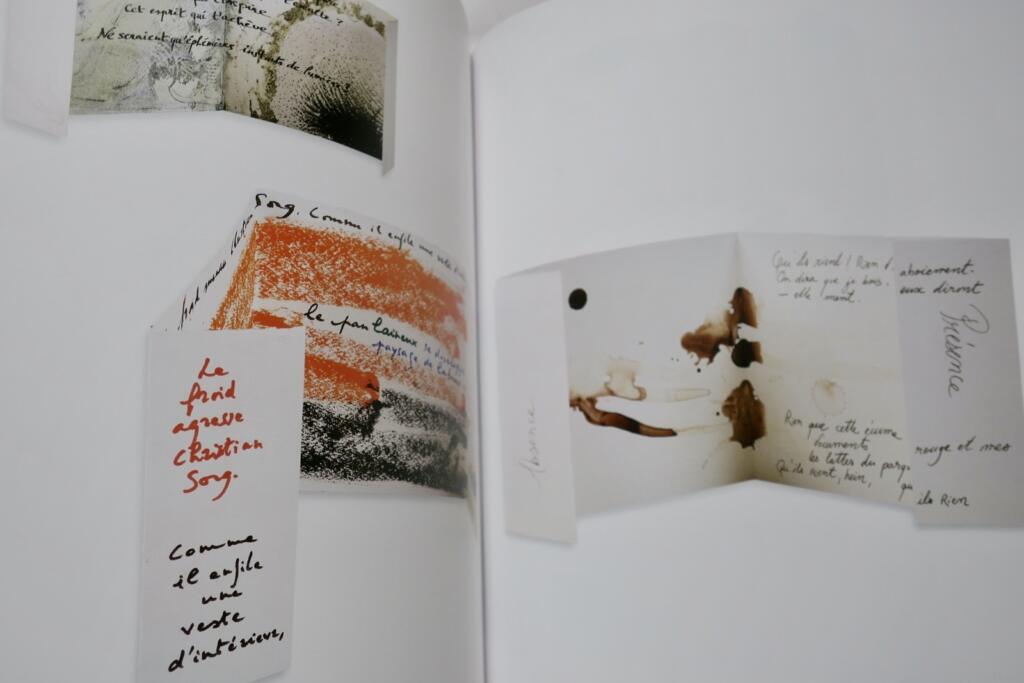 Cet esprit qui t'achève
Ne seraient qu'éphémères instants de lumière?
Song. Comme il enfile une
le pan laineux se
paysage de
Le
froid
agresse
Christian
Song.
Comme
il enfile
une
veste
d'intérieur,
Absence
Qu'ils rient! Rien
On dira que je bois.
— elle ment.
aboiement.
eux diront
Présence
Rien que cette écume
humants
les lattes du parq
Qu'ils rient, hein,
rouge et mes
qu
ils Rien